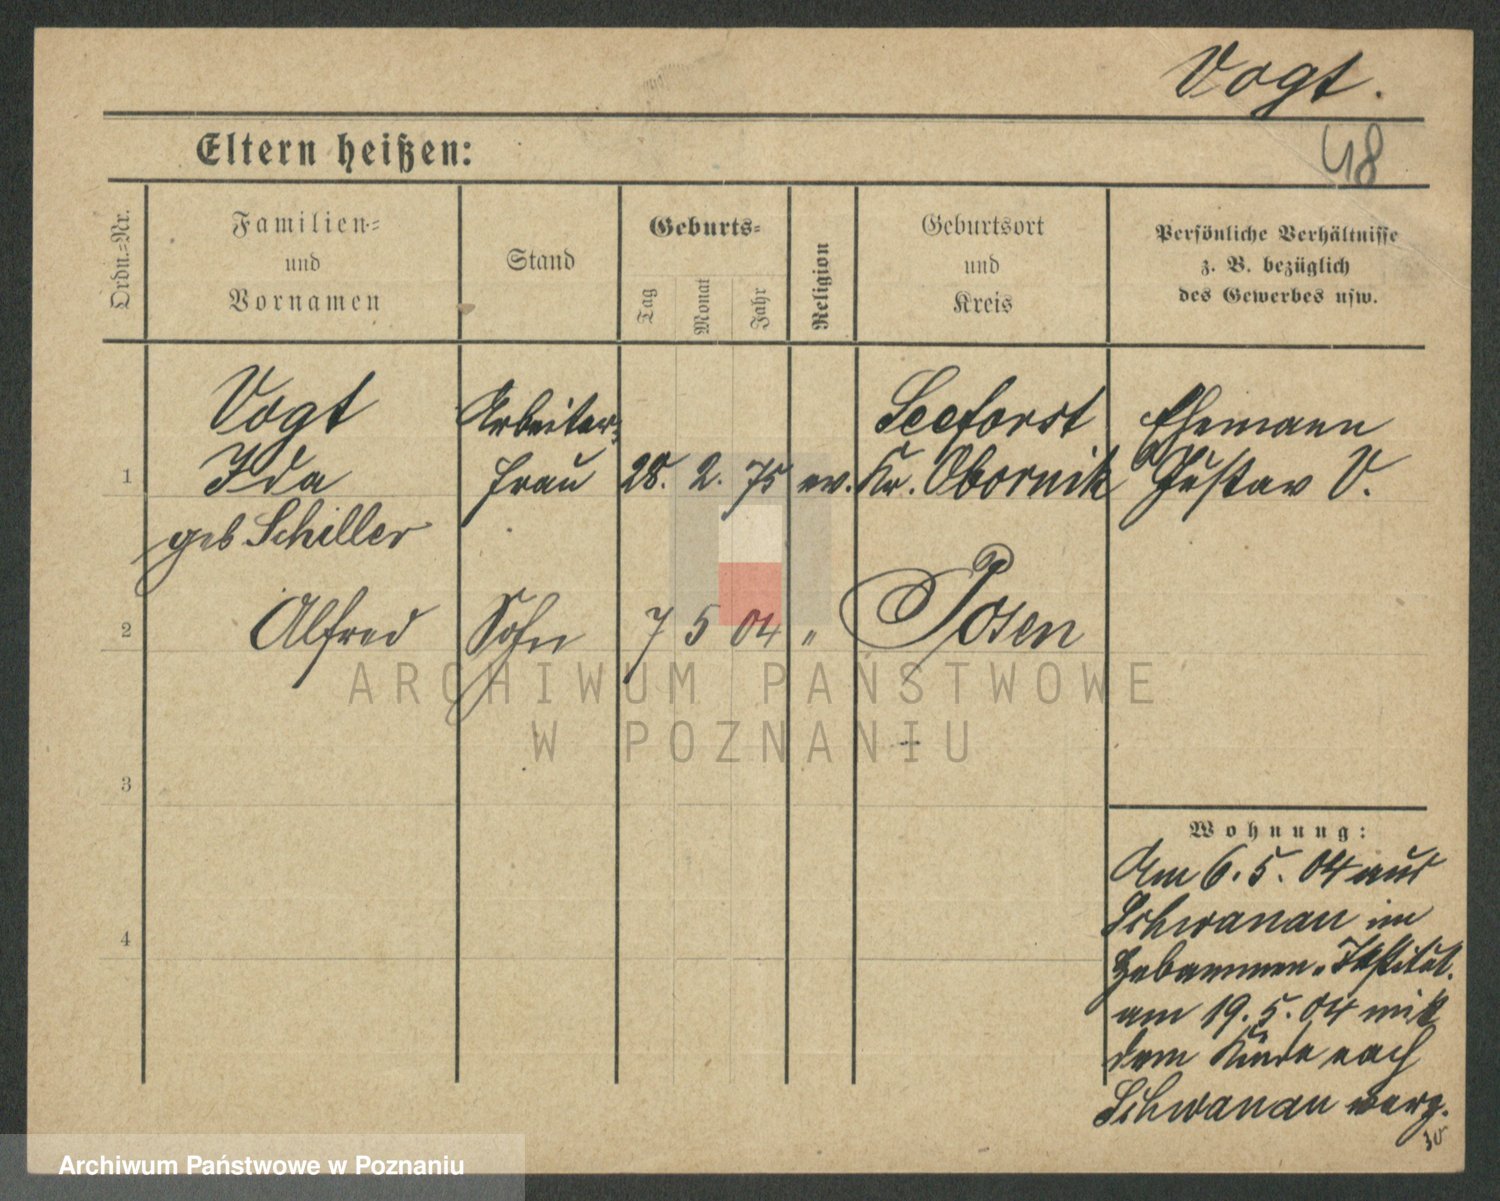 Vogt.
48
Eltern heißen:
Ordn.-Nr.
Familien-
und
Vornamen
Stand
Geburts-
Tag
Monat
Jahr
Religion
Geburtsort
und
Kreis
Persönliche Verhältnisse
z. B. bezüglich
des Gewerbes usw.
1
Vogt
Ida
geb Schiller
Arbeiter-
frau
28. 2. 75
ev.
Seeforst
Kr. Obornik
Ehemann
Gustav V.
2
Alfred
Sohn
7 5 04
"
Posen
3
4
Wohnung:
Am 6. 5. 04 aus
Schwanau im
Hebammen-Institut.
am 19. 5. 04 mit
dem Kinde nach
Schwanau verz.
ARCHIWUM PAŃSTWOWE
W POZNANIU
Archiwum Państwowe w Poznaniu